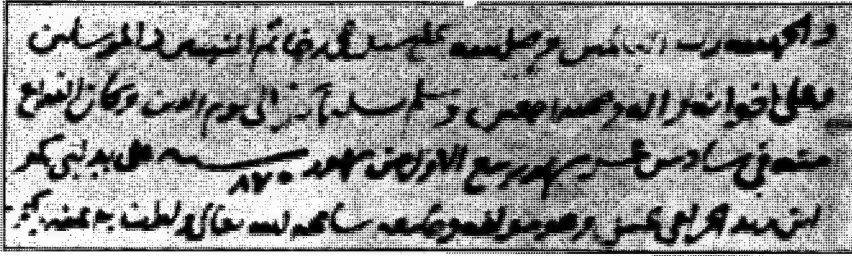 والحمد لله رب العالمين وصلى الله على سيدنا محمد خاتم النبيين والمرسلين
وعلى اخوانه واله وصحبه اجمعين وسلم تسليما الى يوم الدين وكان الفراغ
منه في سادس عشرين شهر ربيع الاول من شهور سنة ٨٧٠ على يد
الجراعي الحنبلي وهو مولفه سامحه الله تعالى ولطف به بمنه